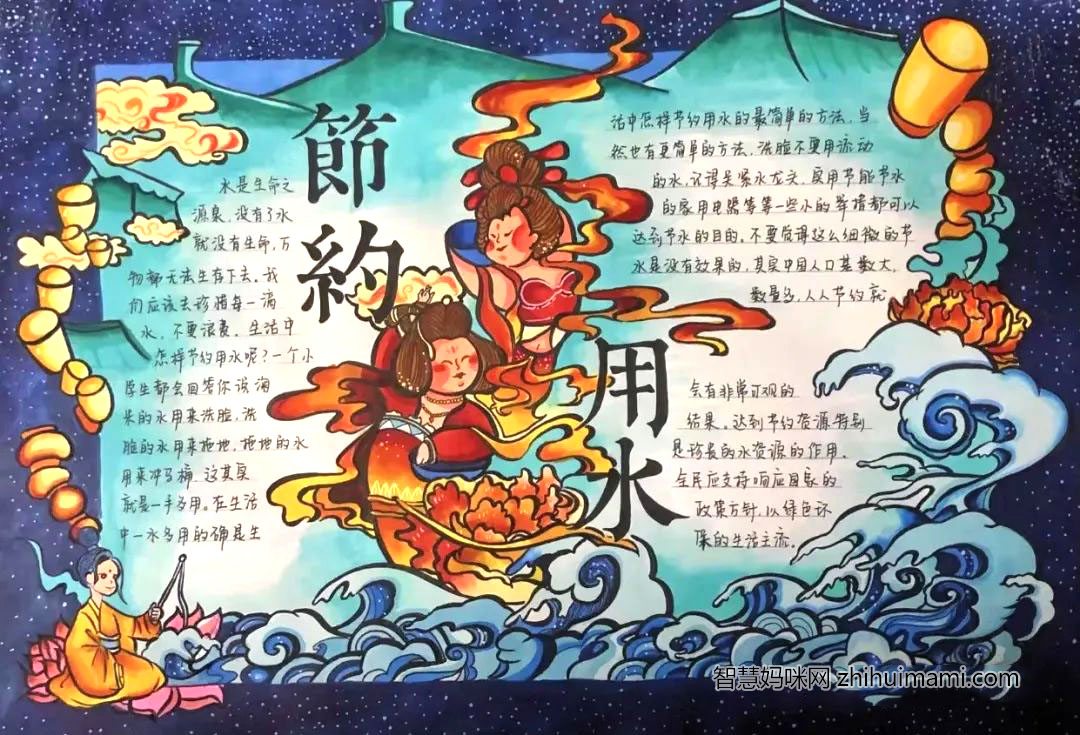 節約
用水
水是生命之
源泉，没有了水
就没有生命，万
物都无法生存下去。我
们应该去珍惜每一滴
水，不要浪费。生活中
怎样节约用水呢？一个小
学生都会回答你说淘
米的水用来洗脸，洗
脸的水用来拖地，拖地的水
用来冲马桶，这其实
就是一手多用。在生活
中一水多用的确是生
活中怎样节约用水的最简单的方法，当
然也有更简单的方法，洗脸不要用流动
的水，记得关紧水龙头，买用节能节水
的家用电器等等一些小的举措都可以
达到节水的目的。不要觉得这么细微的节
水是没有效果的，其实中国人口基数大，
数量多，人人节约就
会有非常可观的
结果。达到节约资源特别
是珍贵的水资源的作用。
全民应支持响应国家的
政策方针，以绿色环
保的生活主流。
智慧妈咪网 zhihuimami.com